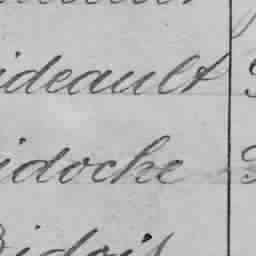 ideault
idocke
Bidois